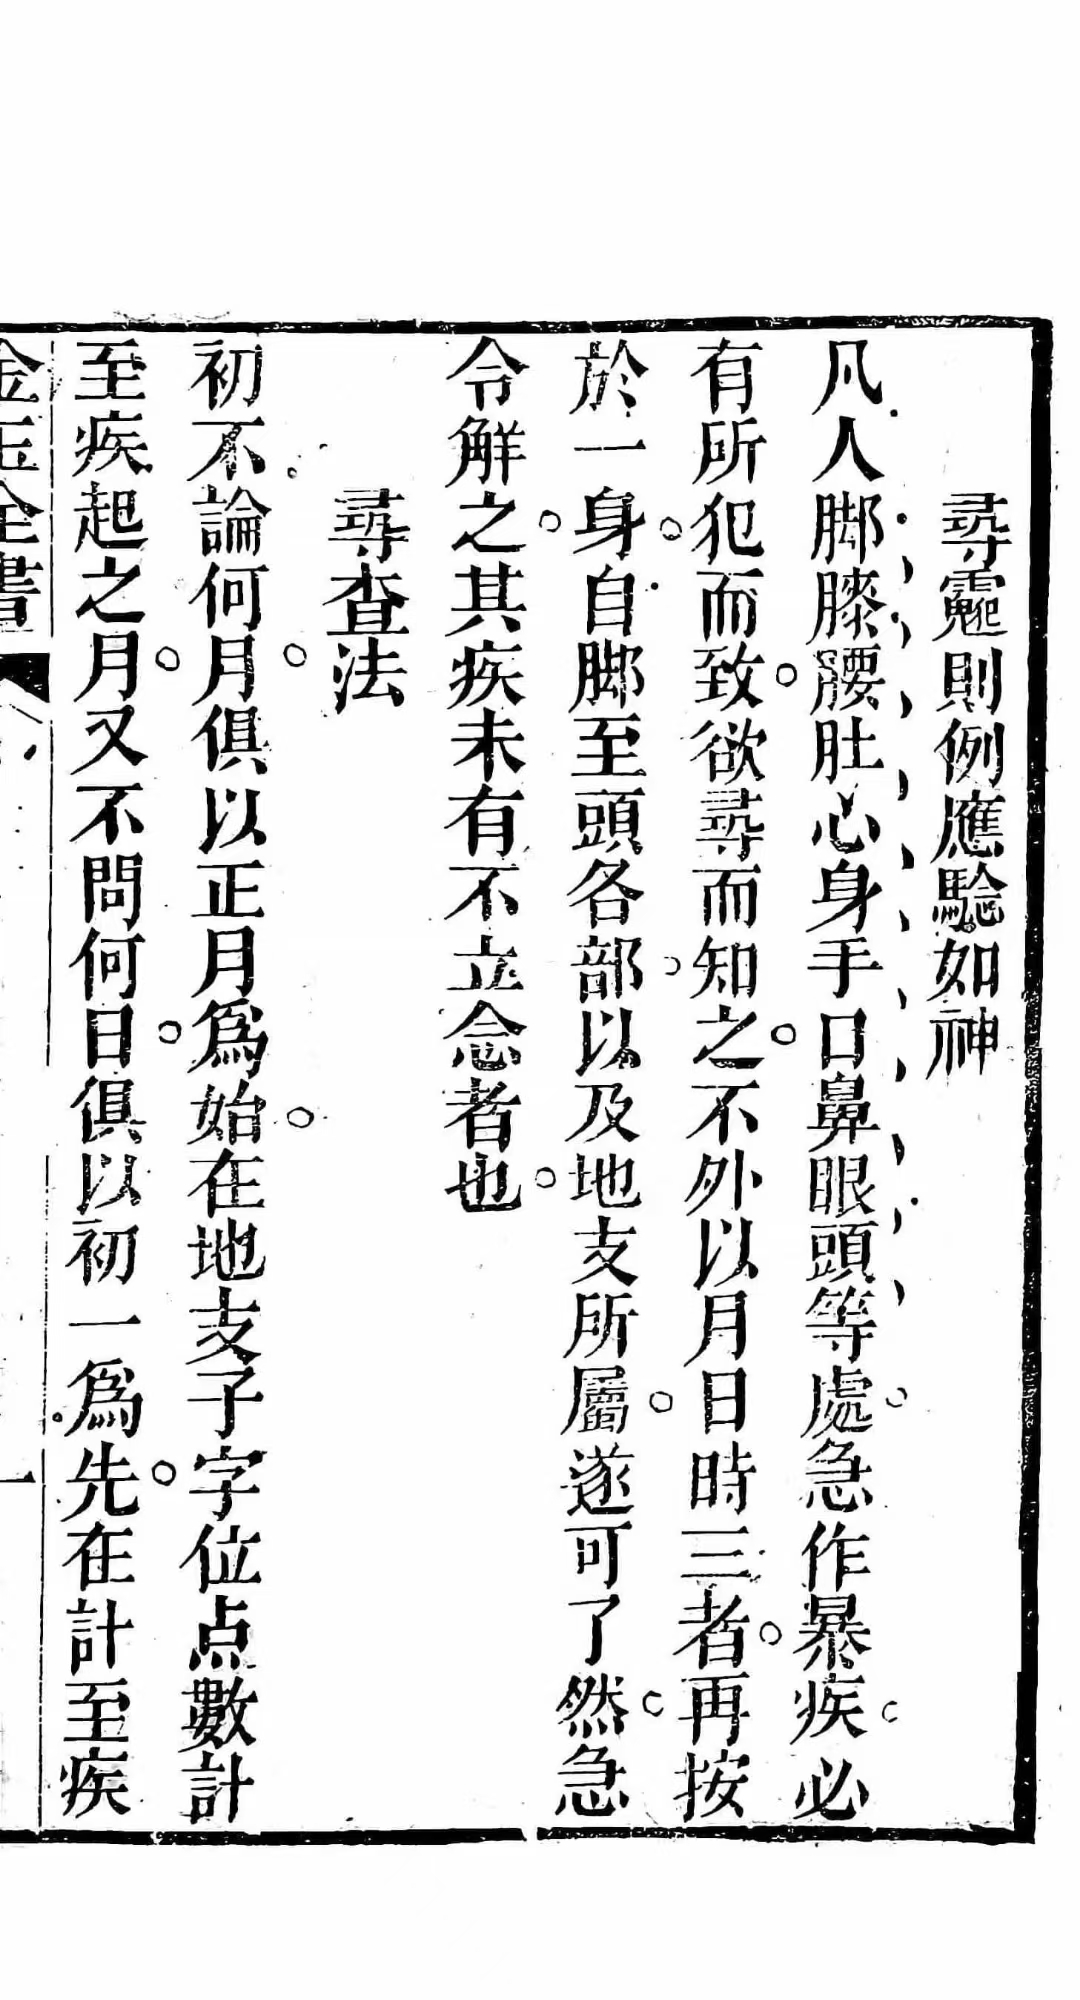 尋龗則例應驗如神
凡人脚膝腰肚心身手口鼻眼頭等處急作暴疾必
有所犯而致欲尋而知之不外以月日時三者再按
於一身自脚至頭各部以及地支所屬遂可了然急
令解之其疾未有不立念者也
尋查法
初不論何月俱以正月爲始在地支子字位点數計
至疾起之月又不問何日俱以初一爲先在計至疾
金玉全書 一